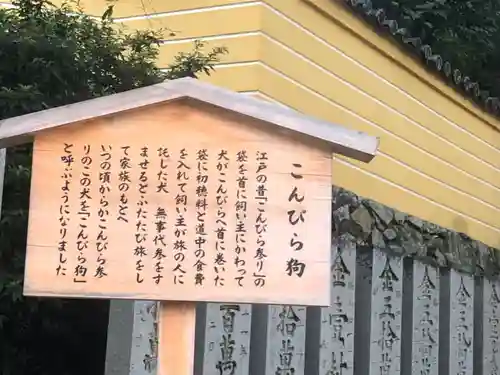 こんぴら狗
江戸の昔「こんぴら参り」の
袋を首に飼い主にかわって
犬がこんぴらへ首に巻いた
袋に初穂料と道中の食費
を入れて飼い主が旅の人に
託した犬　無事代参をす
ませるとふたたび旅をし
て家族のもとへ
いつの頃からかこんぴら参
りのこの犬を「こんぴら狗」
と呼ぶようになりました
金壱
金拾
金三
金
百萬
拾萬